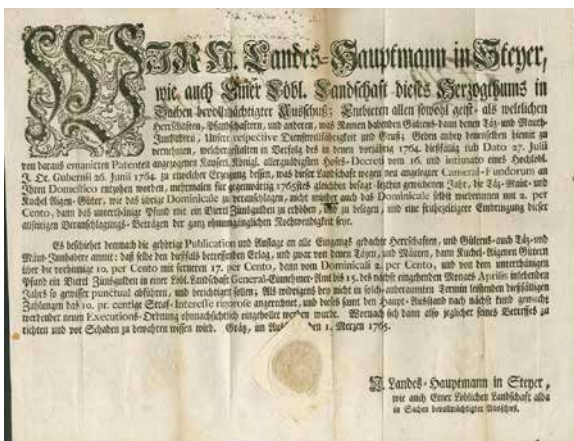 WIR N. Landes-Hauptmann in Steyer,
wie auch Einer Löbl. Landschaft dieses Herzogthums in
Sachen bevollmächtigter Ausschuß; Entbieten allen sowohl geist- als weltlichen
Herrschaften, Pfandschaftern, und anderen, was Namen habenden Gültens- dann denen Täz- und Mauth-
Innhabern, Unser respective Dienstwillfährigkeit und Gruß; Geben anbey denenselben hiemit zu
vernehmen, welchergestalten in Verfolg des in denen vorjährig 1764. dießfällig sub Dato 27. Julii
von daraus emanirten Patenten angezogenen Kayserl. Königl. allergnädigsten Hofes-Decreti vom 16. und intimato eines Hochlöbl.
J. Oe. Gubernii 26. Junii 1764. zu Erzielung dessen, was dieser Landschaft wegen neu angelegter Cameral-Fundorum an
Ihren Domestico entzohen worden, mehrmalen für gegenwärtig 1765stes gleichwie besagt-letzthin gewichenes Jahr, die Täz, Mäut- und
Kuchel Aigen-Güter, wie das übrige Dominicale zu veranschlagen, nicht minder auch das Dominicale selbst wiederumen mit 2. per
Cento, dann das unterthänige Pfund mit ein Viertl Zinsgulden zu erhöhen, und zu belegen, und eine fruhezeitigere Einbringung dieser
allseitigen Veranschlagungs-Beträgen der ganz ohnumgänglichen Nothwendigkeit seye.
Es beschiehet demnach die gehörige Publication und Auflage an alle Eingangs gedachte Herrschaften, und Gültens- auch Täz- und
Mäut-Innhabere anmit: daß selbe den dießfalls betreffenden Erlag, und zwar von denen Täzen, und Mäuten, dann Kuchel-Aigenen Gütern
über die vorhinige 10. per Cento mit ferneren 17. per Cento, dann vom Dominicali 2. per Cento, und von dem unterthänigen
Pfund ein Viertl Zinsgulden in einer Löbl. Landschaft General-Einnehmer-Amt bis 15. des nächst eingehenden Monats Aprilis instehenden
Jahrs so gewisser punctual abführen, und berichtigen sollen; Als widrigens den nicht in solch-anberaumten Termin leistenden dießfälligen
Zahlungen das 10. pr. centige Straf-Interesse rigorose angerechnet, und dieses samt den Haupt-Ausstand nach nächst kund gemacht
werdender neuen Executions-Ordnung ohnnachsichtlich eingehollet werden wurde. Wornach sich dann also jeglicher seines Betreffes zu
richten und vor Schaden zu bewahren wissen wird. Gräz, im den 1. Merzen 1765.
N. Landes-Hauptmann in Steyer,
wie auch Einer Löblichen Landschaft allda
in Sachen bevollmächtigter Ausschuß.